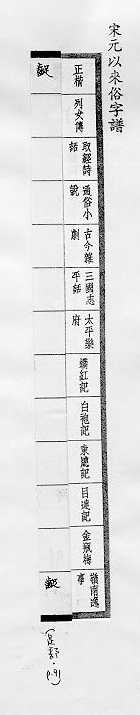 宋元以来俗字譜
正楷
列女傳
取經詩話
通俗小說
古今雜劇
三國志平話
太平樂府
嬌紅記
白袍記
東窻記
目連記
金瓶梅
嶺南逸事
p.91